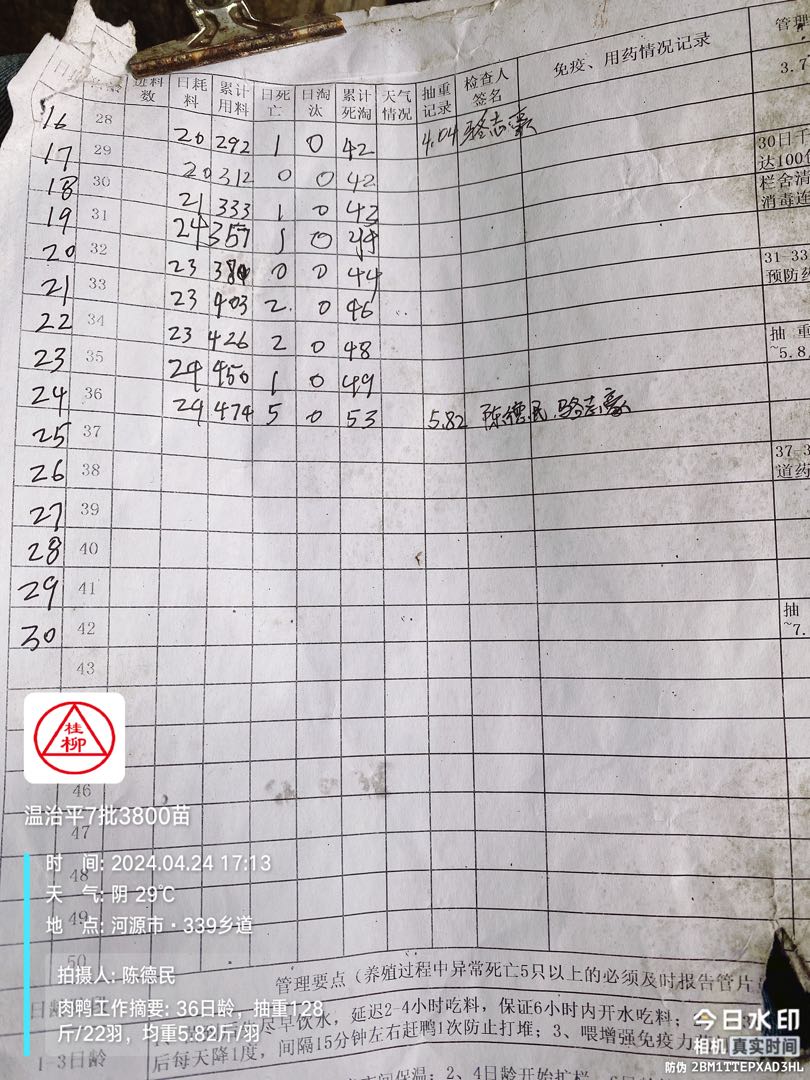 日耗料 累计用料 日死亡 日淘汰 累计死淘 天气情况 抽重记录 检查人签名 免疫、用药情况记录 管理
16 28 20 292 1 0 42 4.04 骆志豪 3.7
17 29 20 312 0 0 42 30日
达100
18 30 21 333 1 0 43 栏舍清
消毒连
19 31 24 357 1 0 44
20 32 23 380 0 0 44 31-33
预防药
21 33 23 403 2 0 46
22 34 23 426 2 0 48 抽重
~5.8
23 35 24 450 1 0 49
24 36 24 474 5 0 53 5.82 陈德民 骆志豪
25 37 37-3
道药
26 38
27 39
28 40
29 41
30 42 抽
~7.
43
桂柳
46
温治平7批3800苗
47
时 间: 2024.04.24 17:13
48
天 气: 阴 29℃
49
地 点: 河源市·339乡道
50
拍摄人: 陈德民
管理要点（养殖过程中异常死亡5只以上的必须及时报告管片
肉鸭工作摘要: 36日龄，抽重128斤/22羽，均重5.82斤/羽
日龄
尽早饮水，延迟2-4小时吃料，保证6小时内开水吃料；
1-3日龄
后每天降1度，间隔15分钟左右赶鸭1次防止打堆；3、喂增强免疫力
保温；2、4日龄开始扩栏，
今日水印
相机 真实时间
防伪 2BM1TTEPXAD3HL